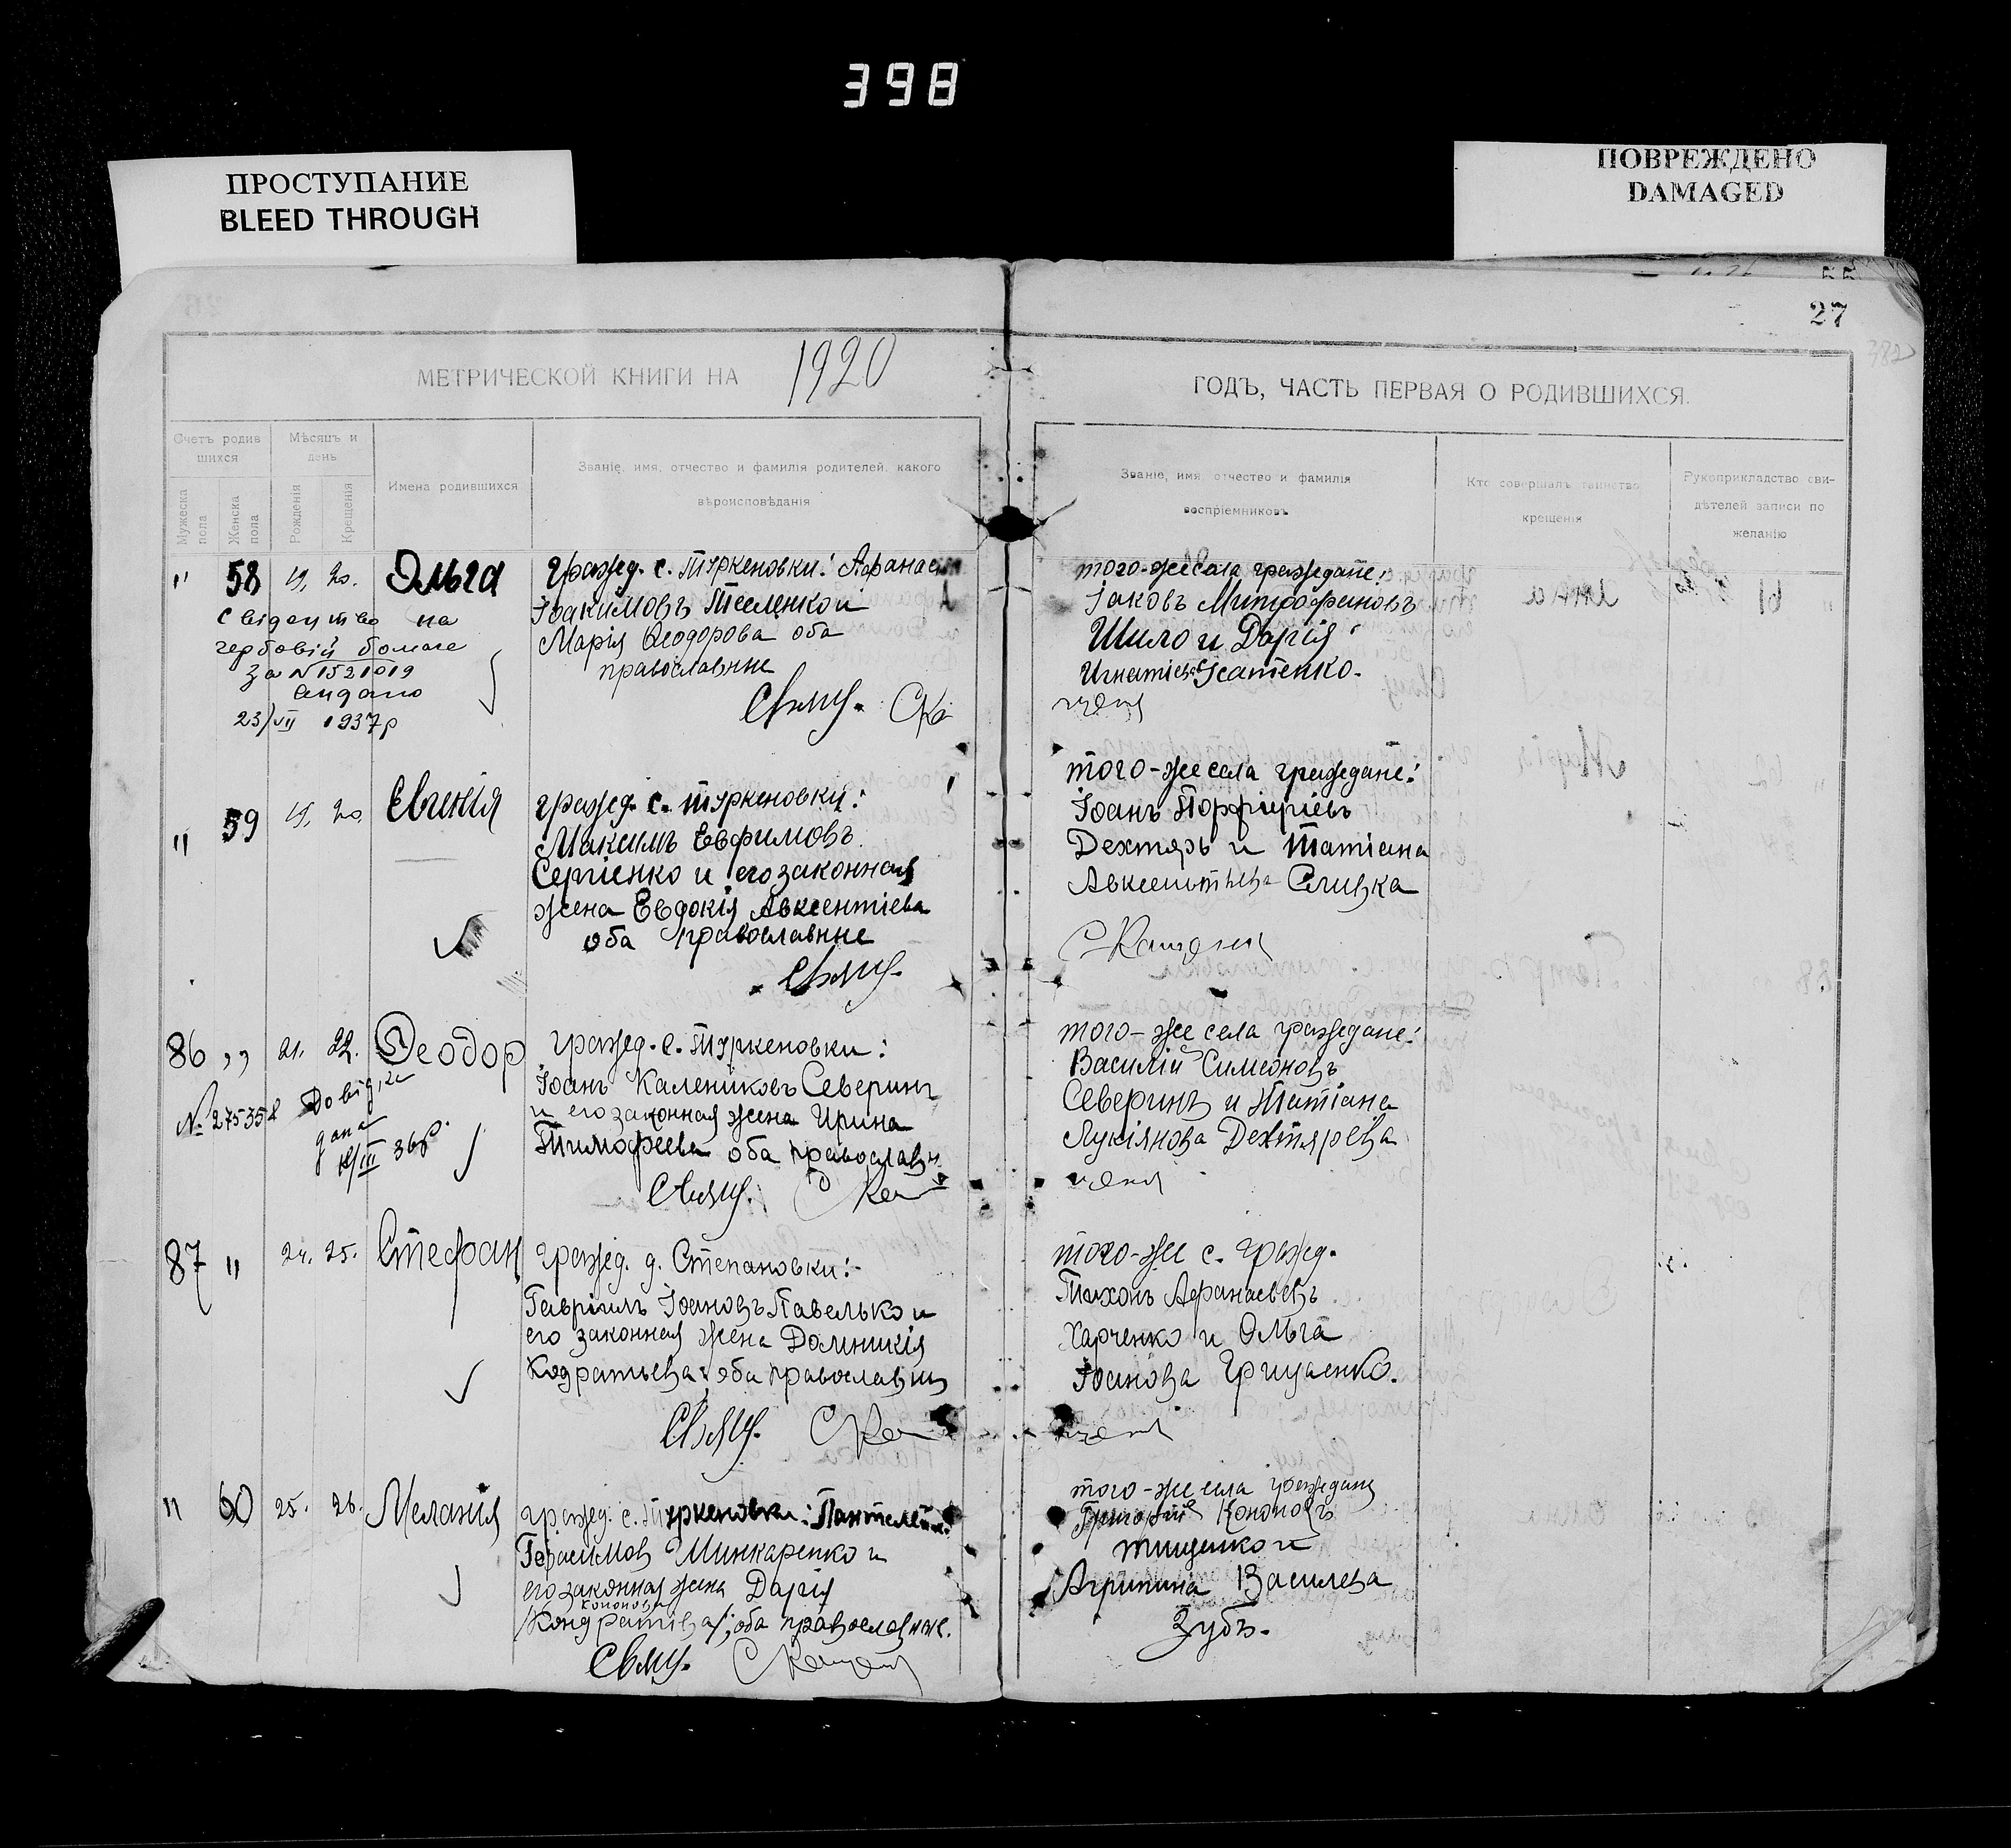 398
ПРОСТУПАНИЕ
BLEED THROUGH
ПОВРЕЖДЕНО
DAMAGED
27
382
МЕТРИЧЕСКОЙ КНИГИ НА 1920
ГОДЪ, ЧАСТЬ ПЕРВАЯ О РОДИВШИХСЯ.
Счетъ родив
шихся
Мужеска
пола
Женска
пола
Мѣсяцъ и
день
Рожденія
Крещенія
Имена родившихся
Званіе, имя, отчество и фамилія родителей, какого
вѣроисповѣданія
Званіе, имя, отчество и фамилія
воспріемниковъ
Кто совершалъ таинство
крещенія
Рукоприкладство сви-
дѣтелей записи по
желанію
" 58 19. 20. Ольга
гражд. с. Туркеновки: Афанасій
Іоакимовъ и
Марія Ѳеодорова оба
православные
Свящ.
на
гербовій
за № 1521019
23/VII 1937р
того-же села граждане:
Іаковъ Митрофановъ
Шило и Дарія
Игнатіева Усатенко.
" 59 19. 20. Евгенія
гражд. с. Туркеновки:
Максимъ Евфимовъ
Сергіенко и его законная
жена Евдокія Авксентіева
оба православные
Свящ.
того-же села граждане:
Іоанъ Порфиріевъ
Дехтярь и Татіана
Авксентьева Сливка
86 ,, 21. 22. Ѳеодор
гражд. с. Туркеновки:
Іоанъ Калениковъ Северинъ
и его законная жена Ирина
Тимофеева оба православн
Свящ.
№ 275358
дана
III 36р.
того-же села граждане:
Василій Симеоновъ
Северинъ и Татіана
Лукіянова Дехтярева
87 " 24. 25. Стефан
гражд. д. Степановки:
Гавріилъ Іоановъ Павелько и
его законная жена Домникія
Кодратьева оба православны
Свящ.
того-же с. гражд.
Тихонъ Афанасьевъ
Харченко и Ольга
Іоанова Грищенко.
" 60 25. 26. Меланія
гражд. с. Туркеновки: Пантелеім.
Герасимов Минкаренко и
его законная жена Дарія
Кононова
/Кондратіева/; оба православные.
Свящ.
того-же села граждане
Григорій Кононовъ
Тищенко и
Агрипина Василева
Зубъ.